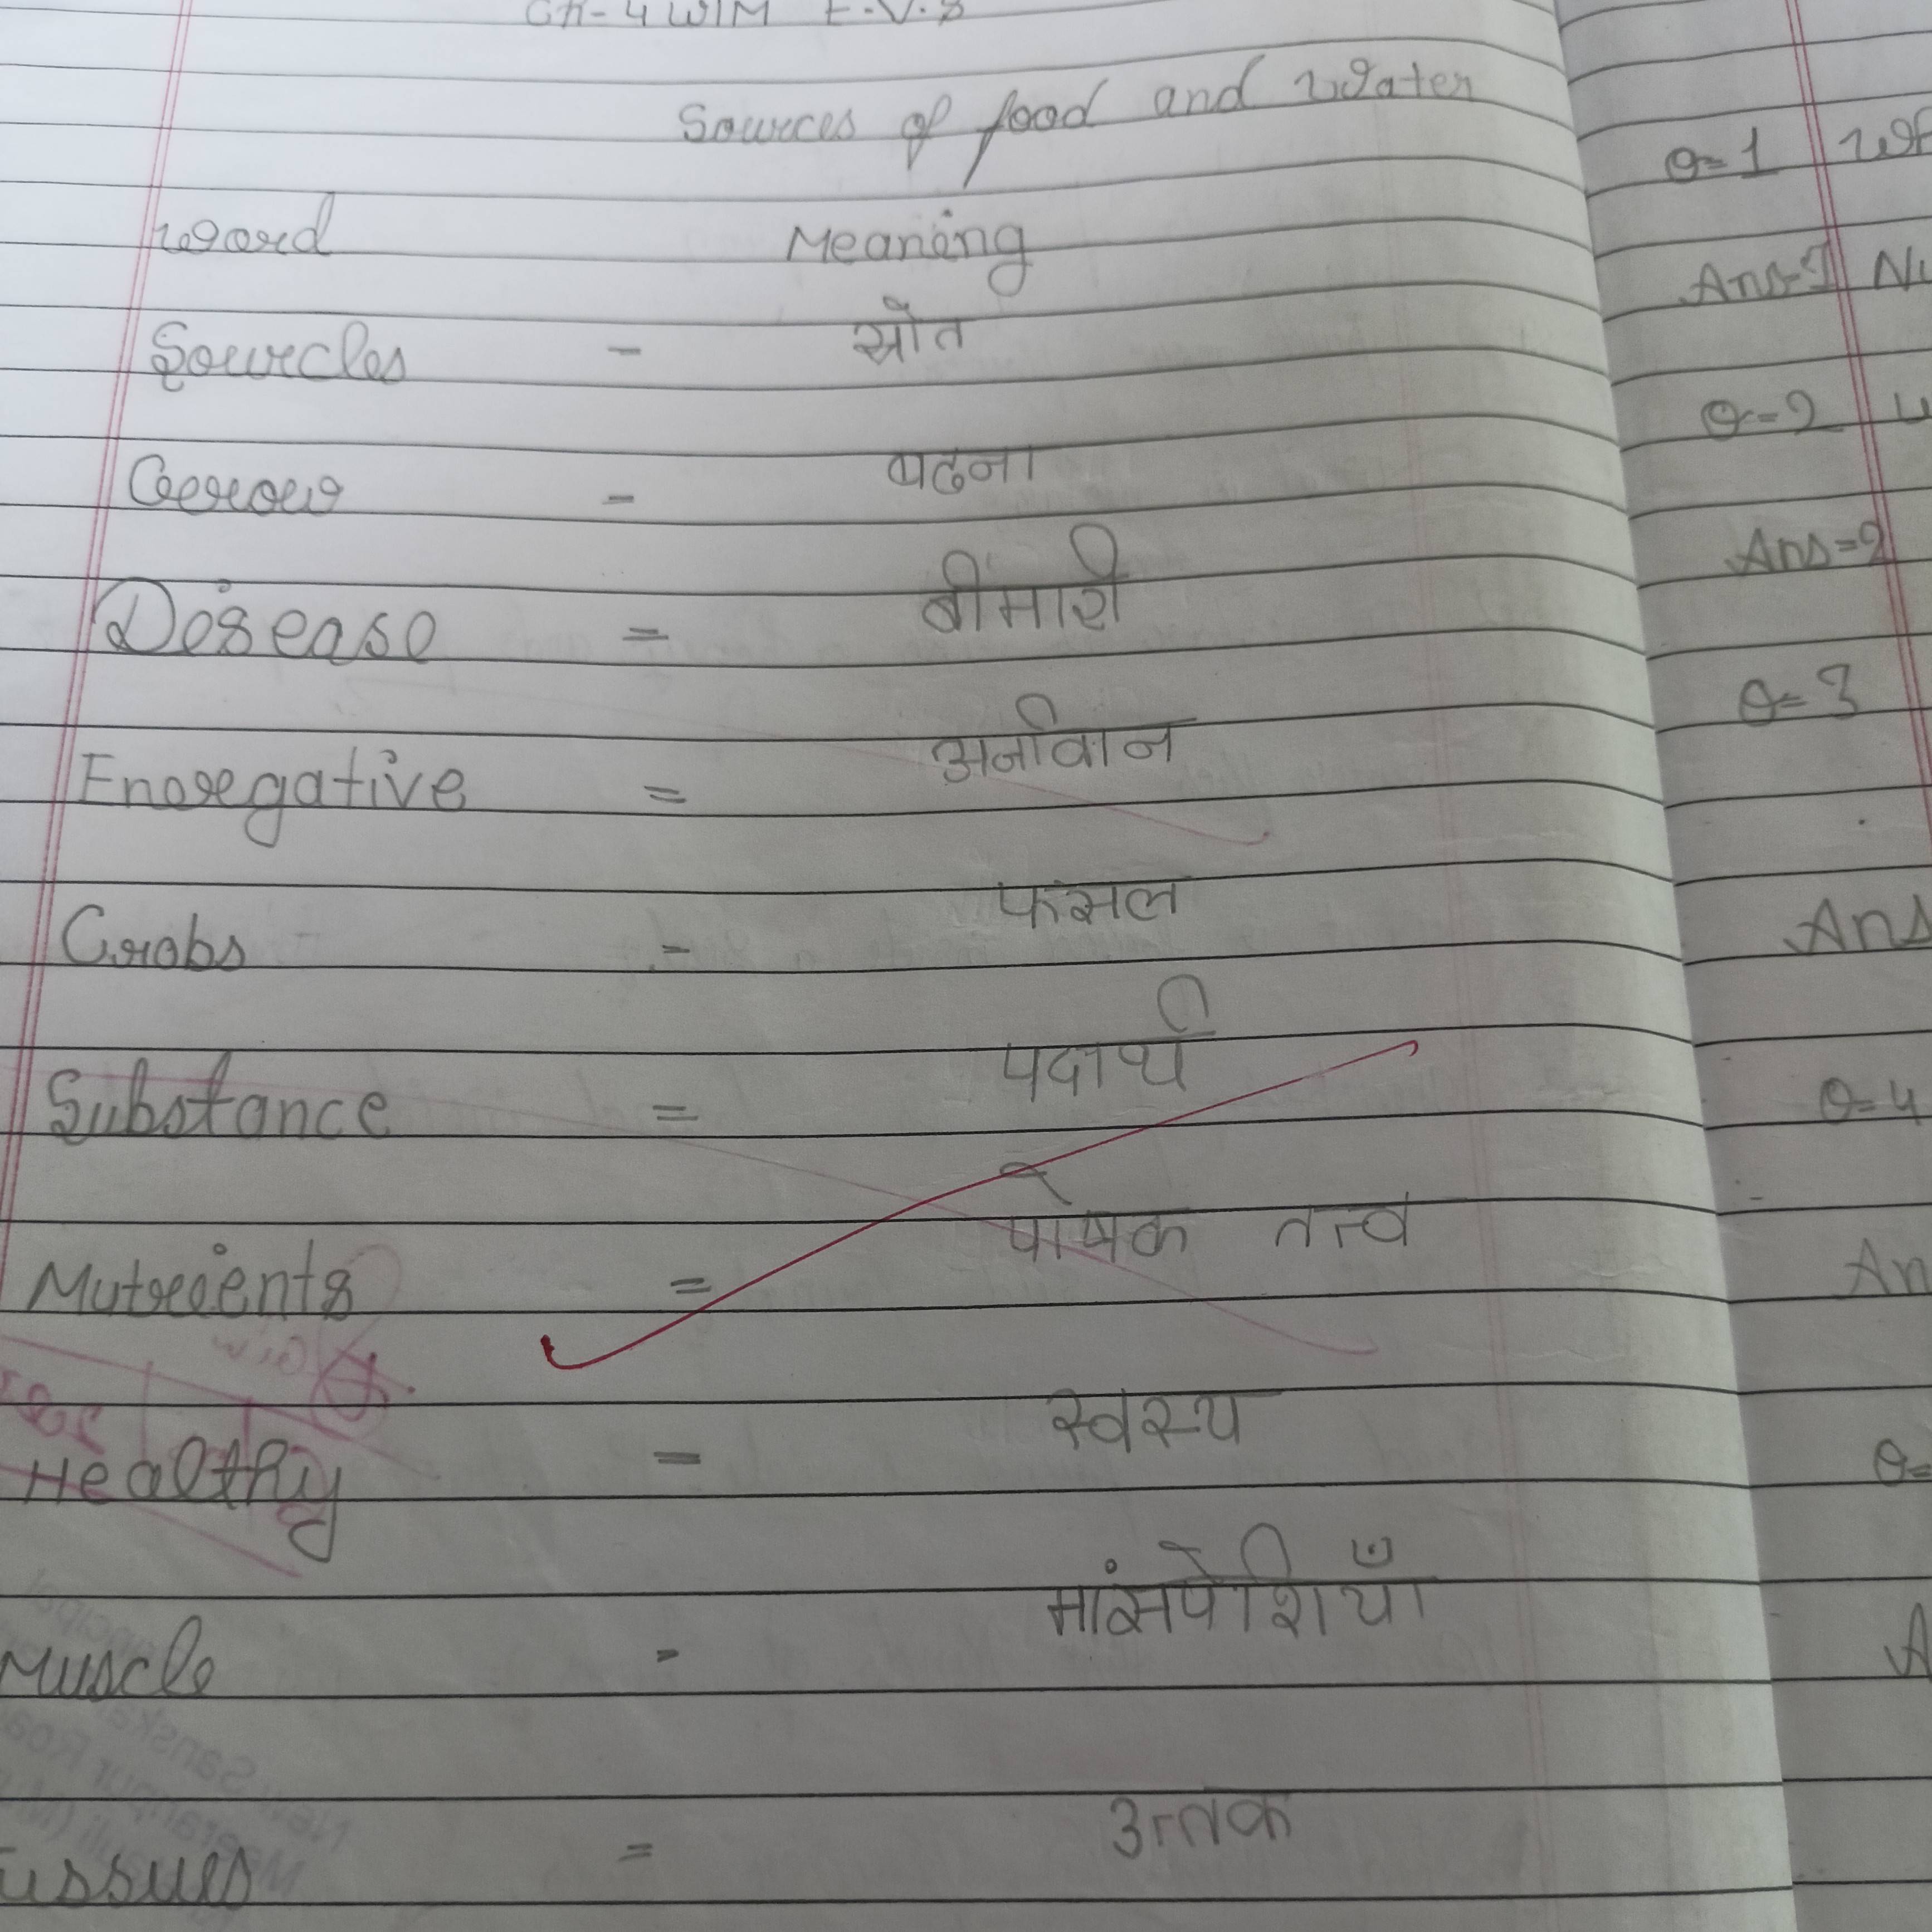 Ch-4 W/M E.V.S
Sources of food and water
Word Meaning
Sourcles - स्रोत
Gerow - बढना
Disease = बीमारी
Eneregative = अर्जीवान
Crobs = फसल
Substance = पदार्थ
Mutrients = पोषक तत्व
Healthy = स्वस्थ
Muscle - मांसपेशियाँ
issues = उत्तक
Q=1
Ans=1
Q=2
Ans=2
Q=3
Ans
Q=4
An
Q=
A